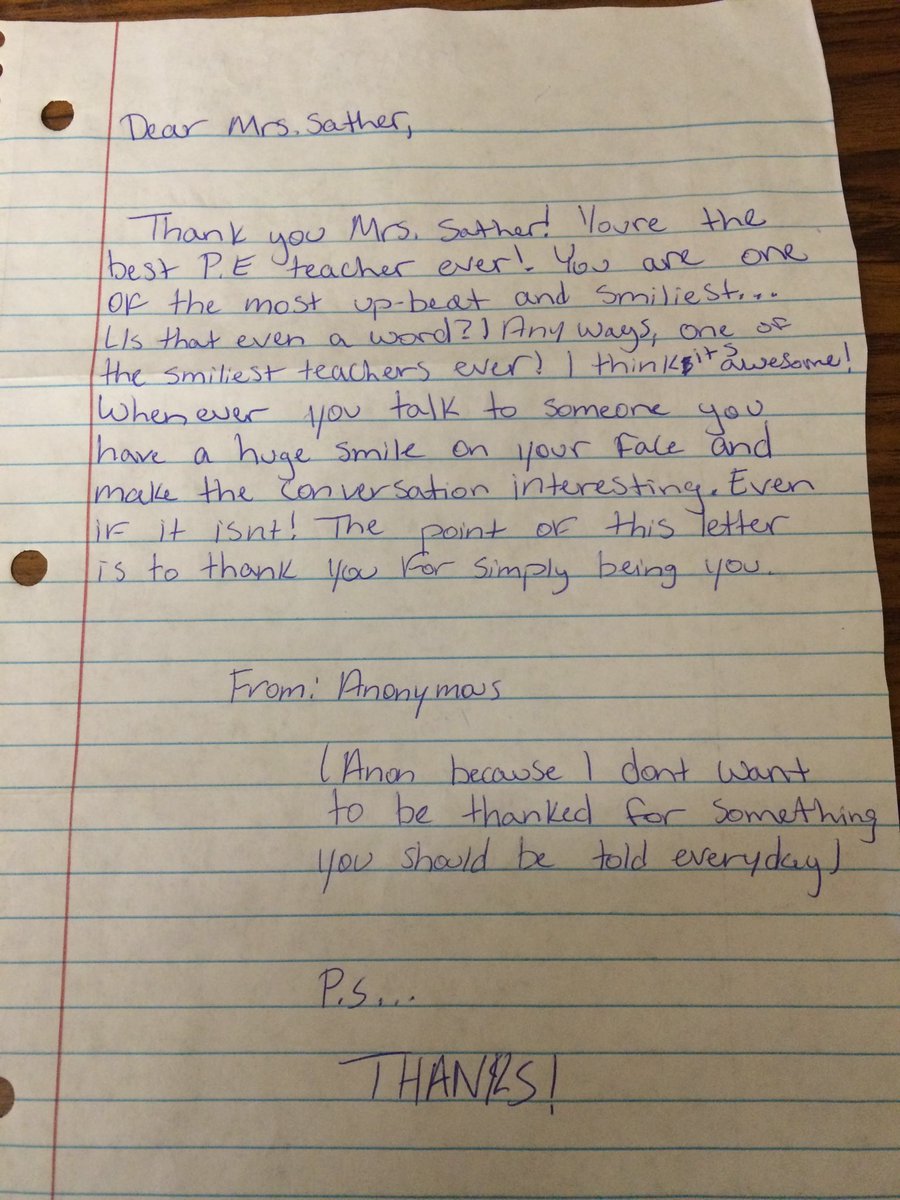 Dear Mrs. Sather,
Thank you Mrs. Sather! Youre the
best P.E teacher ever! You are one
of the most up-beat and smiliest...
(Is that even a word?) Any ways, one of
the smiliest teachers ever! I think its awesome!
Whenever you talk to someone you
have a huge smile on your face and
make the conversation interesting. Even
if it isnt! The point of this letter
is to thank you for simply being you.
From: Anonymous
(Anon because I dont want
to be thanked for something
you should be told everyday)
P.S...
THANKS!